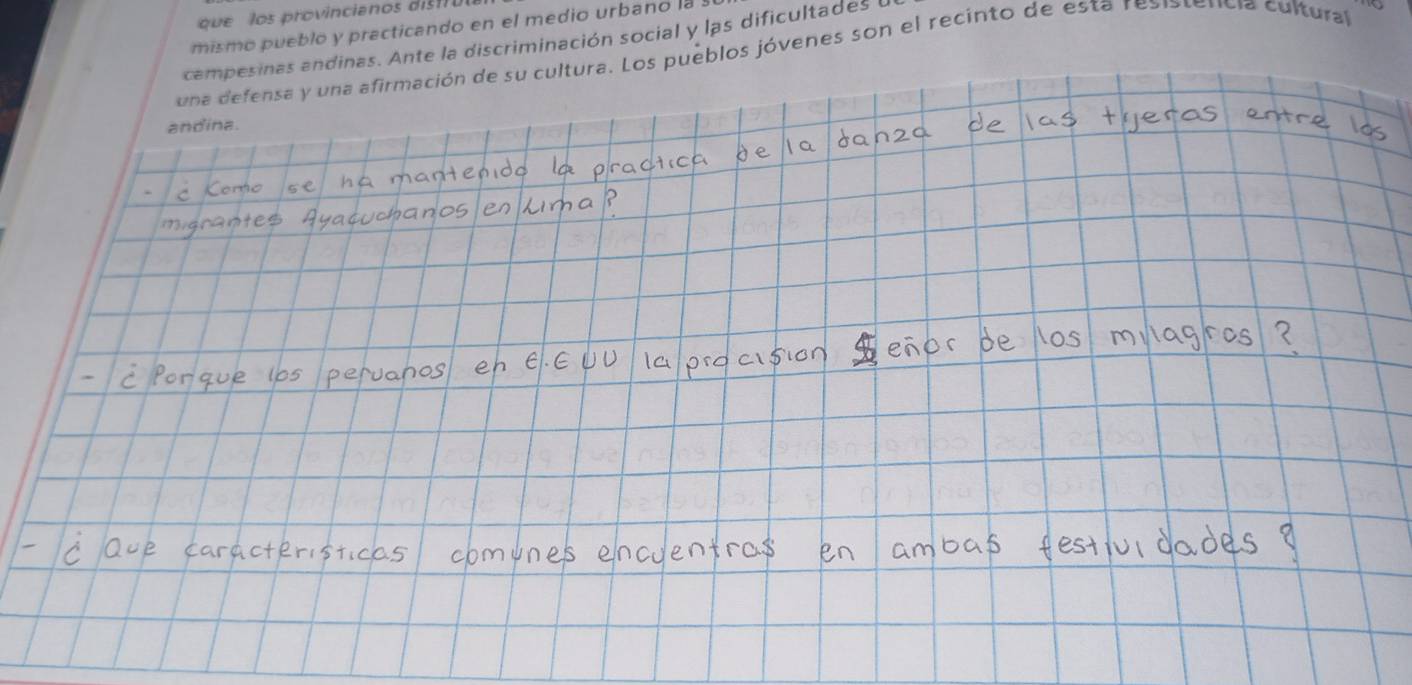 que los provincianos
mismo pueblo y practicando en el medio urbano la
campesinas andinas. Ante la discriminación social y las dificultades
una defensa y una afirmación de su cultura. Los pueblos jóvenes son el recinto de esta resistencia cultural
andina.
- ¿Como se ha mantenido la practica de la danza de las tijeras entre los
migrantes Ayacuchanos en Lima?
- ¿Porque los peruanos en E.EUU la procision Señor de los milagros?
- ¿Que caracteristicas comunes encuentras en ambas festividades?